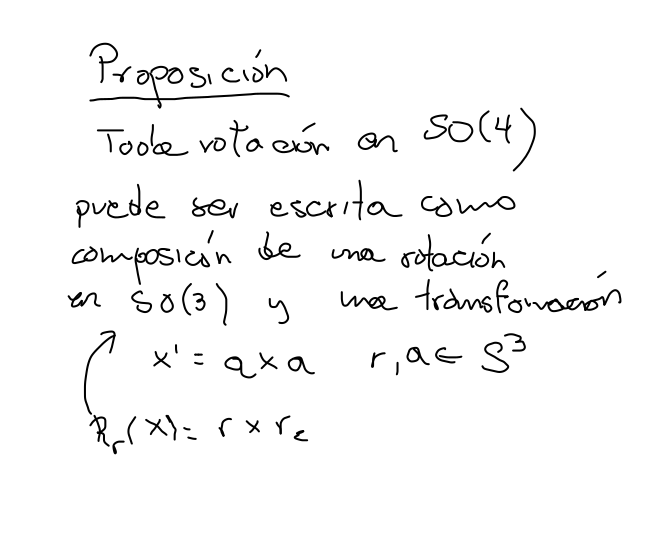 Proposición
Toda rotación en SO(4)
puede ser escrita como
composición de una rotación
en SO(3) y una transformación
x' = a x a r, a ∈ S³
R_r(x) = r x r_c